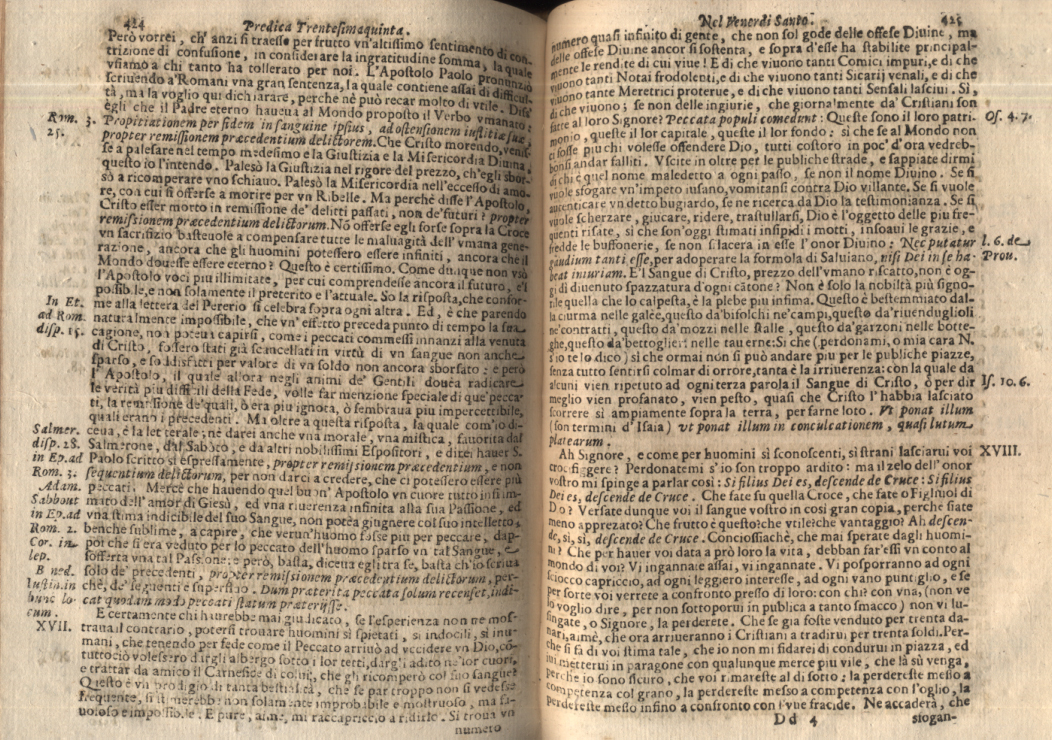 424
Predica Trentesimaquinta.
Però vorrei, ch' anzi si traesse per frutto vn'altissimo sentimento di con-
trizione di confusione, in considerare la ingratitudine somma, la quale
vsiamo a chi tanto ha tollerato per noi. L'Apostolo Paolo pronunziò
scriuendo a'Romani vna gran sentenza, la quale contiene assai di difficul-
tà, ma la voglio qui dichiarare, perche ne può recar molto di vtile. Diss'
egli che il Padre eterno haueua al Mondo proposto il Verbo vmanato:
Rom. 3.
25.
Propitiationem per fidem in sanguine ipsius, ad ostensionem iustitiæ suæ,
propter remissionem præcedentium delictorem. Che Cristo morendo, venis-
se a palesare nel tempo medesimo e la Giustizia e la Misericordia Diuina,
questo io l'intendo. Palesò la Giustizia nel rigore del prezzo, ch'egli sbor-
sò a ricomperare vno schiauo. Palesò la Misericordia nell'eccesso di amo-
re, con cui si offerse a morire per vn Ribelle. Ma perchè disse l'Apostolo,
Cristo esser morto in remissione de' delitti passati, non de'futuri? propter
remissionem præcedentium delictorum. Nō offerse egli forse sopra la Croce
vn sacrifizio basteuole a compensare tutte le maluagità dell'vmana gene-
razione, ancora che gli huomini potessero essere infiniti, ancora che il
Mondo douesse essere eterno? Questo è certissimo. Come dunque non vsò
l'Apostolo voci più illimitate, per cui comprendesse ancora il futuro, e'l
possibile, e non solamente il preterito e l'attuale. So la risposta, che confor-
In Et.
ad Rom.
disp. 15.
me alla lettera del Pererio si celebra sopra ogni altra. Ed, è che parendo
naturalmente impossibile, che vn' effetto preceda punto di tempo la sua
cagione, non poteua capirsi, come i peccati commessi innanzi alla venuta
di Cristo, fossero stati già scancellati in virtù di vn sangue non anche
sparso, e soddisfatti per valore di vn soldo non ancora sborsato: e però
l'Apostolo, il quale allora negli animi de' Gentili douea radicare
le verità piu difficili della Fede, volle far menzione speciale di que'pecca-
ti, la remissione de'quali, ò era piu ignota, ò sembraua piu impercettibile,
quali erano i precedenti. Ma oltre a questa risposta, la quale com'io di-
Salmer.
disp. 28.
in Ep. ad
Rom. 3.
Adam.
Sabbout
in Ep. ad
Rom. 2.
Cor. in
lep.
B ned.
Iustin. in
hunc lo-
cum.
ceua, è la letterale; ne darei anche vna morale, vna mistica, fauorita dal
Salmerone, dal Sabòto, e da altri nobilissimi Espositori, e direi hauer S.
Paolo scritto sì espressamente, propter remissionem præcedentium, e non
sequentium delictorum, per non darci a credere, che ci potessero essere più
peccati. Mercè che hauendo quel buon' Apostolo vn cuore tutto infiam-
mato dell'amor di Giesù, ed vna riuerenza infinita alla sua Passione, ed
vna stima indicibile del suo Sangue, non potea giugnere col suo intelletto,
benche sublime, a capire, che verun'huomo fosse piu per peccare, dap-
poi che si era veduto per lo peccato dell'huomo sparso vn tal Sangue, e
sofferta vna tal Passione; e però, basta, diceua egli tra se, basta ch'io scriua
solo de' precedenti, propter remissionem præcedentium delictorum, per-
chè, de' seguenti è superfluo. Dum præterita peccata solum recenset, indi-
cat quodam modo peccati statum præterisse.
XVII.
E certamente chi haurebbe mai giudicato, se l'esperienza non ne mos-
traua il contrario, potersi trouare huomini sì spietati, sì indocili, sì inu-
mani, che tenendo per fede come il Peccato arriuò ad vccidere vn Dio, cō-
tuttociò volessero dargli albergo sotto i lor tetti, dargli adito ne'lor cuori,
e trattar da amico il Carnefice di colui, che gli ricomperò col suo sangue?
Questo è vn prodigio di tanta bestialità, che se par troppo non si vedesse
frequente, si stimerebbe non solamente improbabile e mostruoso, ma fa-
uoloso e impossibile. E pure, aimè, mi raccapriccio a ridirlo. Si troua vn
numero
Nel Venerdi Santo.
425
numero quasi infinito di gente, che non sol gode delle offese Diuine, ma
delle offese Diuine ancor si sostenta, e sopra d'esse ha stabilite principal-
mente le rendite di cui viue! E di che viuono tanti Comici impuri, e di che
viuono tanti Notai frodolenti, e di che viuono tanti Sicarij venali, e di che
viuono tante Meretrici proterue, e di che viuono tanti Sensali lasciui. Sì,
di che viuono; se non delle ingiurie, che giornalmente da' Cristiani son
fatte al loro Signore? Peccata populi comedunt: Queste sono il loro patri-
Os. 4. 7.
monio, queste il lor capitale, queste il lor fondo: sì che se al Mondo non
ci fosse piu chi volesse offendere Dio, tutti costoro in poc' d'ora vedreb-
bonsi andar falliti. Vscite in oltre per le publiche strade, e sappiate dirmi
di chi è quel nome maledetto a ogni passo, se non il nome Diuino. Se si
vuole sfogare vn'impeto iusano, vomitansi contra Dio villante. Se si vuole
autenticare vn detto bugiardo, se ne ricerca da Dio la testimonianza. Se si
vuole scherzare, giucare, ridere, trastullarsi, Dio è l'oggetto delle piu fre-
quenti risate, sì che son'oggi stimati insipidi i motti, insoaui le grazie, e
fredde le buffonerie, se non si lacera in esse l'onor Diuino: Nec putatur
l. 6. de
Prou.
gaudium tanti esse, per adoperare la formola di Saluiano, nisi Dei in se ha-
beat iniuriam. E'l Sangue di Cristo, prezzo dell'vmano riscatto, non è og-
gi diuenuto spazzatura d'ogni cātone? Non è solo la nobiltà più signo-
rile quella che lo calpesta, è la plebe piu infima. Questo è bestemmiato dal-
la ciurma nelle galèe, questo da'bifolchi ne'campi, questo da'riuenduglioli
ne'contratti, questo da'mozzi nelle stalle, questo da'garzoni nelle botte-
ghe, questo da'bettoglieri nelle tauerne: Si che (perdonami, o mia cara N.
s'io te lo dico) sì che ormai non si può andare piu per le publiche piazze,
senza tutto sentirsi colmar di orrore, tanta è la irriuerenza: con la quale da
alcuni vien ripetuto ad ogni terza parola il Sangue di Cristo, ò per dir
Is. 10. 6.
meglio vien profanato, vien pesto, quasi che Cristo l'habbia lasciato
scorrere sì ampiamente sopra la terra, per farne loto. Vt ponat illum
(son termini d'Isaia) vt ponat illum in conculcationem, quasi lutum
platearum.
XVIII.
Ah Signore, e come per huomini sì sconoscenti, sì strani lasciarui voi
trocifiggere? Perdonatemi s'io son troppo ardito: ma il zelo dell'onor
vostro mi spinge a parlar così: Si filius Dei es, descende de Cruce: Si filius
Dei es, descende de Cruce. Che fate su quella Croce, che fate o Figliuol di
Dio? Versate dunque voi il sangue vostro in così gran copia, perche siate
meno apprezato? Che frutto è questo? che vtile? che vantaggio? Ah descen-
de, sì, sì, descende de Cruce. Conciossiachè, che mai sperate dagli huomi-
ni? Che per hauer voi data a prò loro la vita, debban far'essi vn conto al
mondo di voi? Vi ingannate assai, vi ingannate. Vi posporranno ad ogni
sciocco capriccio, ad ogni leggiero interesse, ad ogni vano puntiglio, e se
per sorte voi verrete a confronto presso di loro: con chi? con vna, (non ve
lo voglio dire, per non sottoporui in publica a tanto smacco) non vi lu-
singate, o Signore, la perderete. Che se gia foste venduto per trenta da-
nari, aimè, che ora arriueranno i Cristiani a tradirui per trenta soldi. Per-
che si fà di voi stima tale, che io non mi fidarei di condurui in piazza, ed
iui metterui in paragone con qualunque merce piu vile, che là sù venga,
perche io sono sicuro, che voi rimareste al di sotto: la perdereste messo a
competenza col grano, la perdereste messo a competenza con l'oglio, la
perdereste messo infino a confronto con l'vue fracide. Ne accaderà, che
Dd 4
sfogan-